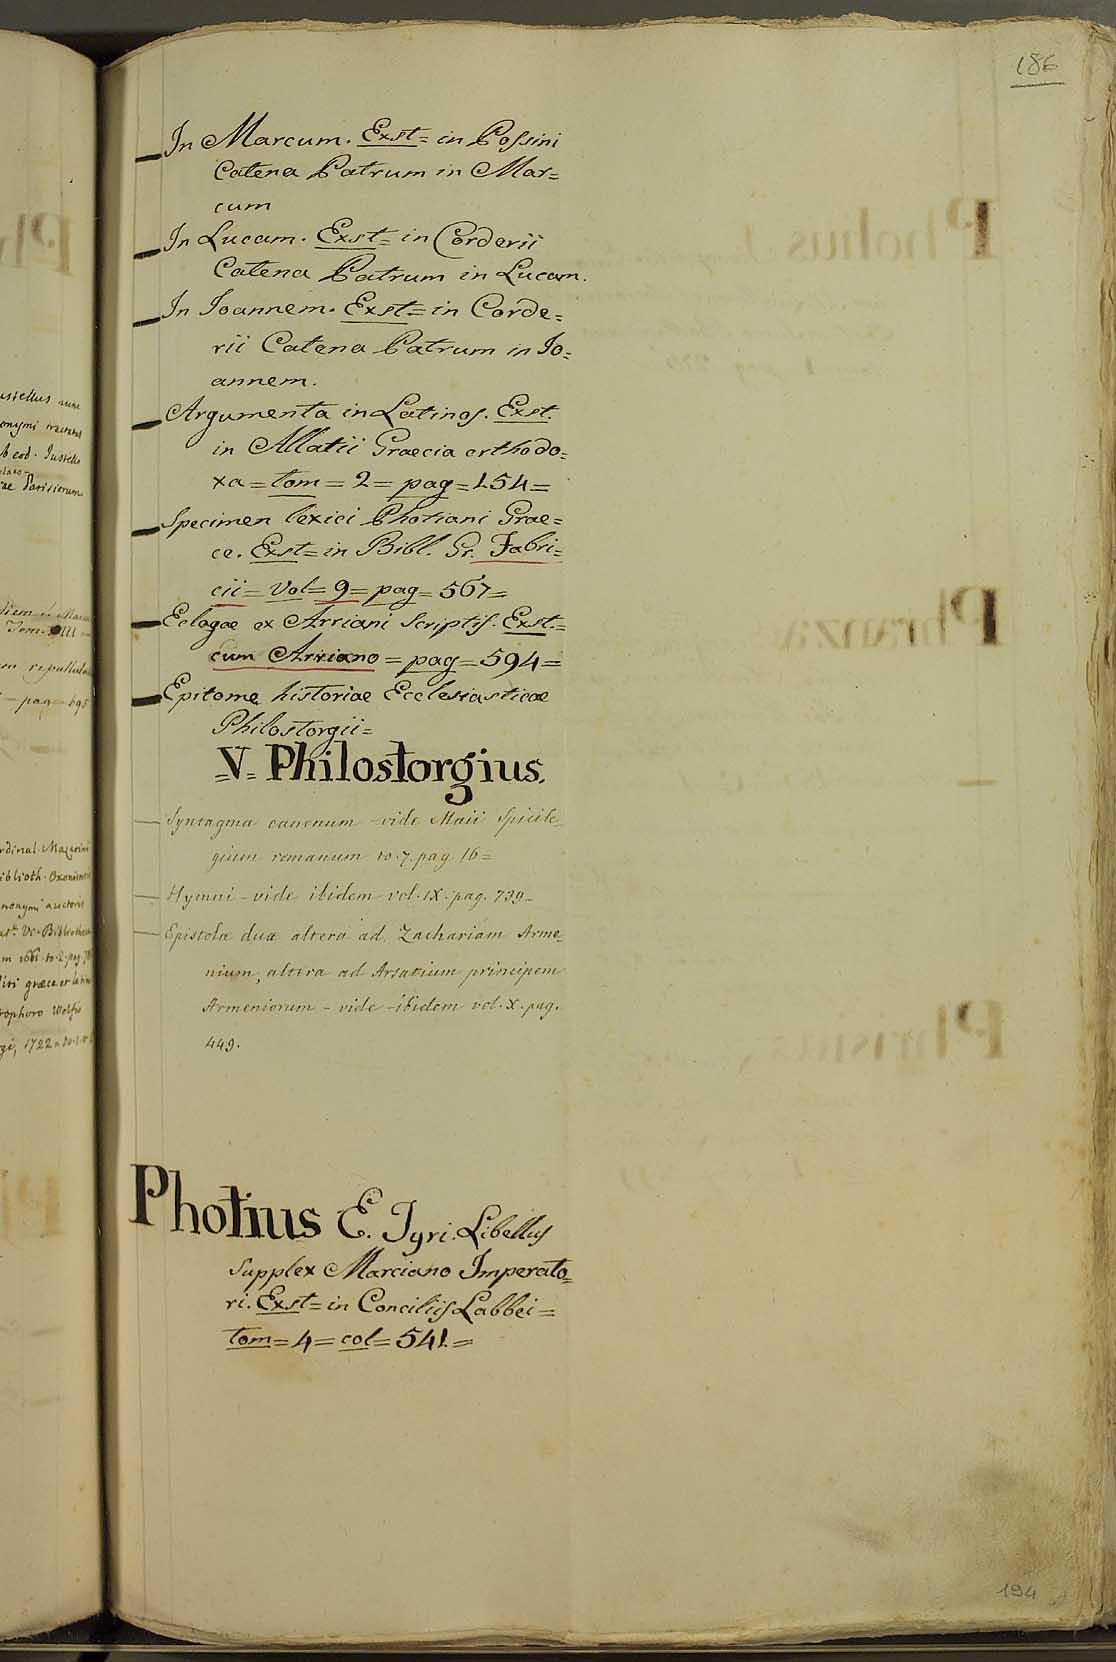 186
In Marcum. Exst= in Possini
Catena Patrum in Mar=
cum
In Lucam. Exst= in Corderii
Catena Patrum in Lucam.
In Ioannem. Exst= in Corde=
rii Catena Patrum in Io=
annem.
Argumenta in Latinos. Exst.
in Allatii Graecia orthodo=
xa = tom = 2 = pag = 154 =
Specimen lexici Photiani Grae=
ce. Exst= in Bibl. Gr. Fabri=
cii = Vol = 9 = pag = 567 =
Eclogae ex Arriani Scriptis. Exst.=
cum Arriano = pag = 594 =
Epitome historiae Ecclesiasticae
Philostorgii =
=V= Philostorgius.
Syntagma canonum - vide Maii Spicile=
gium romanum to. 7. pag. 16 =
Hymni - vide ibidem vol. IX. pag. 739 -
Epistolæ duæ altera ad Zachariam Arme=
nium, altera ad Arsatium principem
Armeniorum - vide ibidem vol. X. pag.
449.
Photius E. Tyri. Libellus
Supplex Marciano Imperato=
ri. Exst= in Conciliis Labbei =
tom = 4 = col = 541 =
194